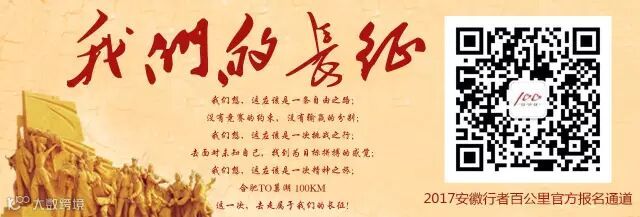 我们的长征
我们想，这应该是一条自由之路；
没有竞赛的约束，没有输赢的分别；
我们想，这应该是一次挑战之行；
去面对未知自己，找到为目标拼搏的感觉；
我们想，这应该是一次精神之旅；
合肥TO巢湖 100KM
这一次，去走属于我们的长征！
100
2017安徽行者百公里官方报名通道
大数跨境